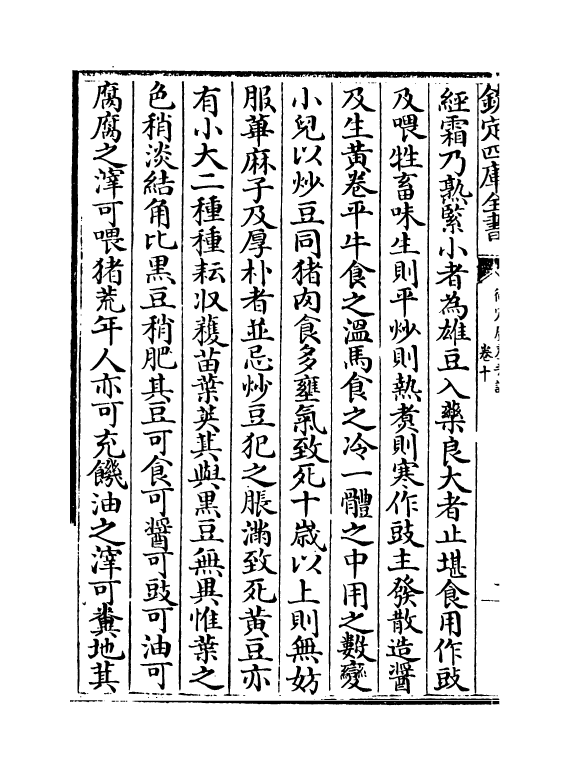 欽定四庫全書
卷十
經霜乃熟緊小者為雄豆入藥良大者止堪食用作豉
及喂牲畜味生則平炒則熱煑則寒作豉主發散造醬
及生黃卷平牛食之溫馬食之冷一體之中用之數變
小兒以炒豆同猪肉食多壅氣致死十歲以上則無妨
服蓖麻子及厚朴者並忌炒豆犯之脹滿致死黃豆亦
有小大二種種耘収穫苗葉莢萁與黑豆無異惟葉之
色稍淡結角比黑豆稍肥其豆可食可醬可豉可油可
腐腐之滓可喂猪荒年人亦可充饑油之滓可糞地萁